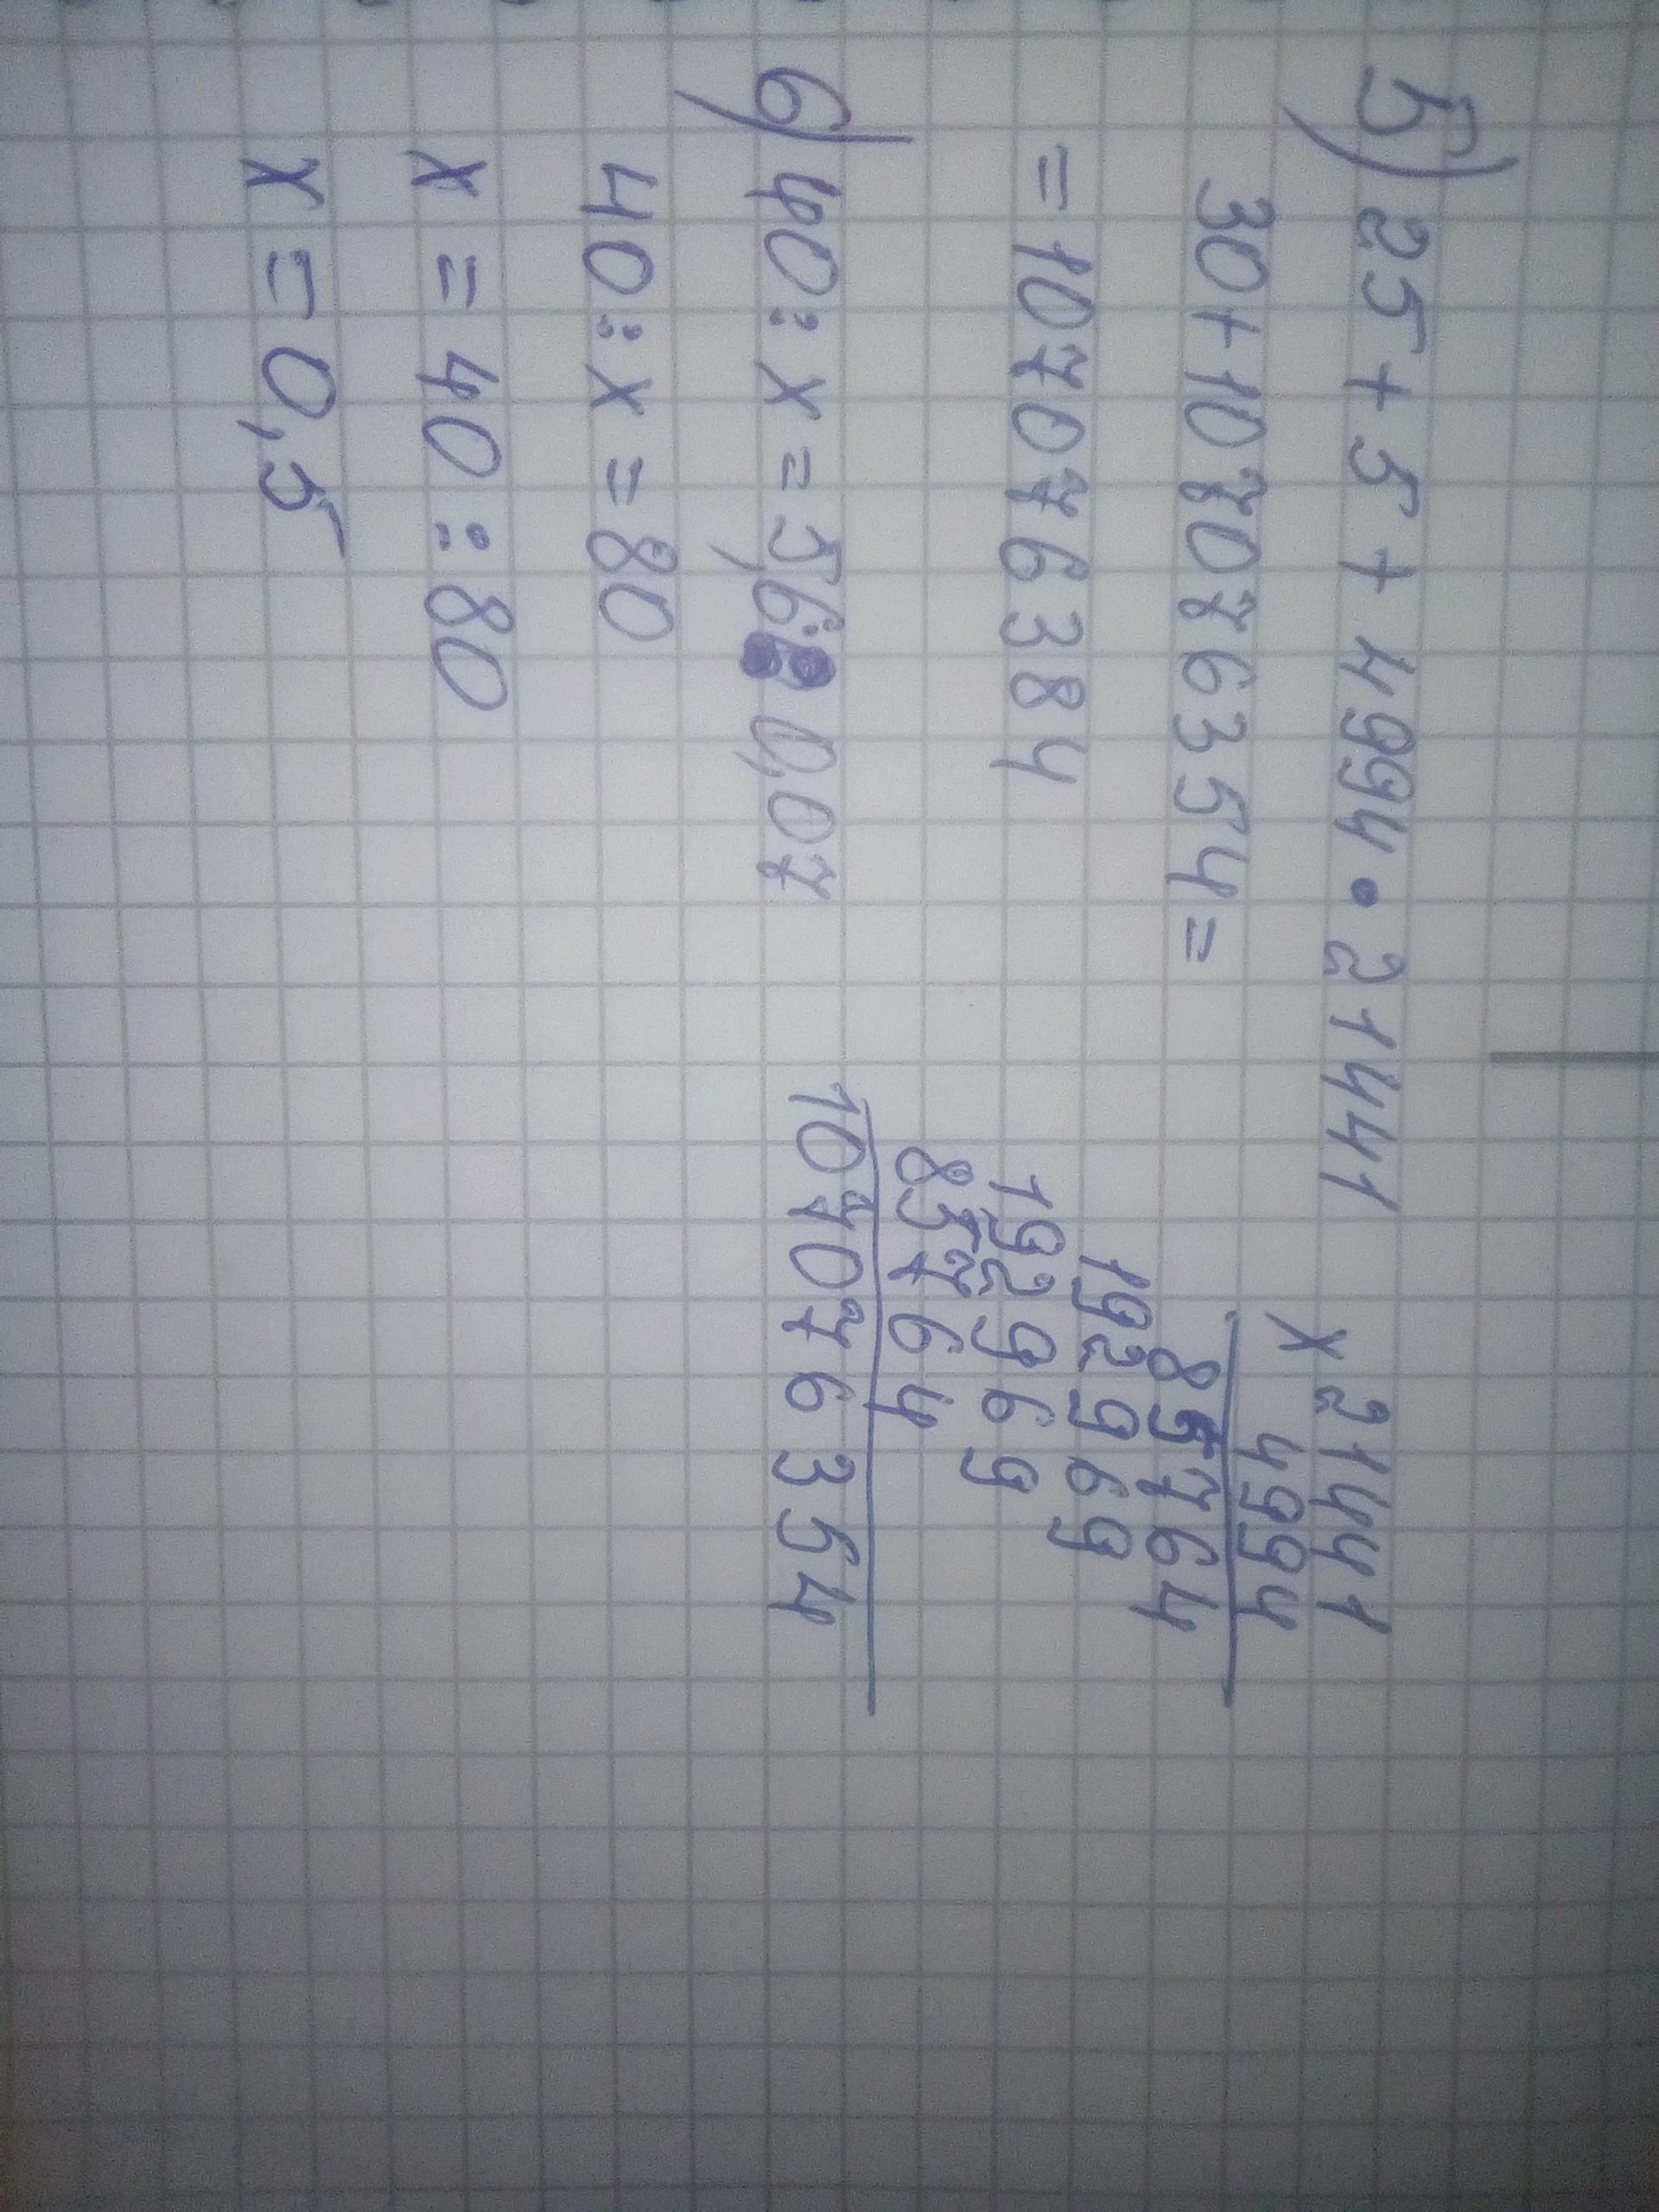 5) 25 + 5 + 4994 • 21441
30 + 107076354 =
= 107076384
6) 40 : x = 5,6 : 0,07
40 : x = 80
x = 40 : 80
x = 0,5
x 21441
4994
85764
192969
192969
85764
107076354